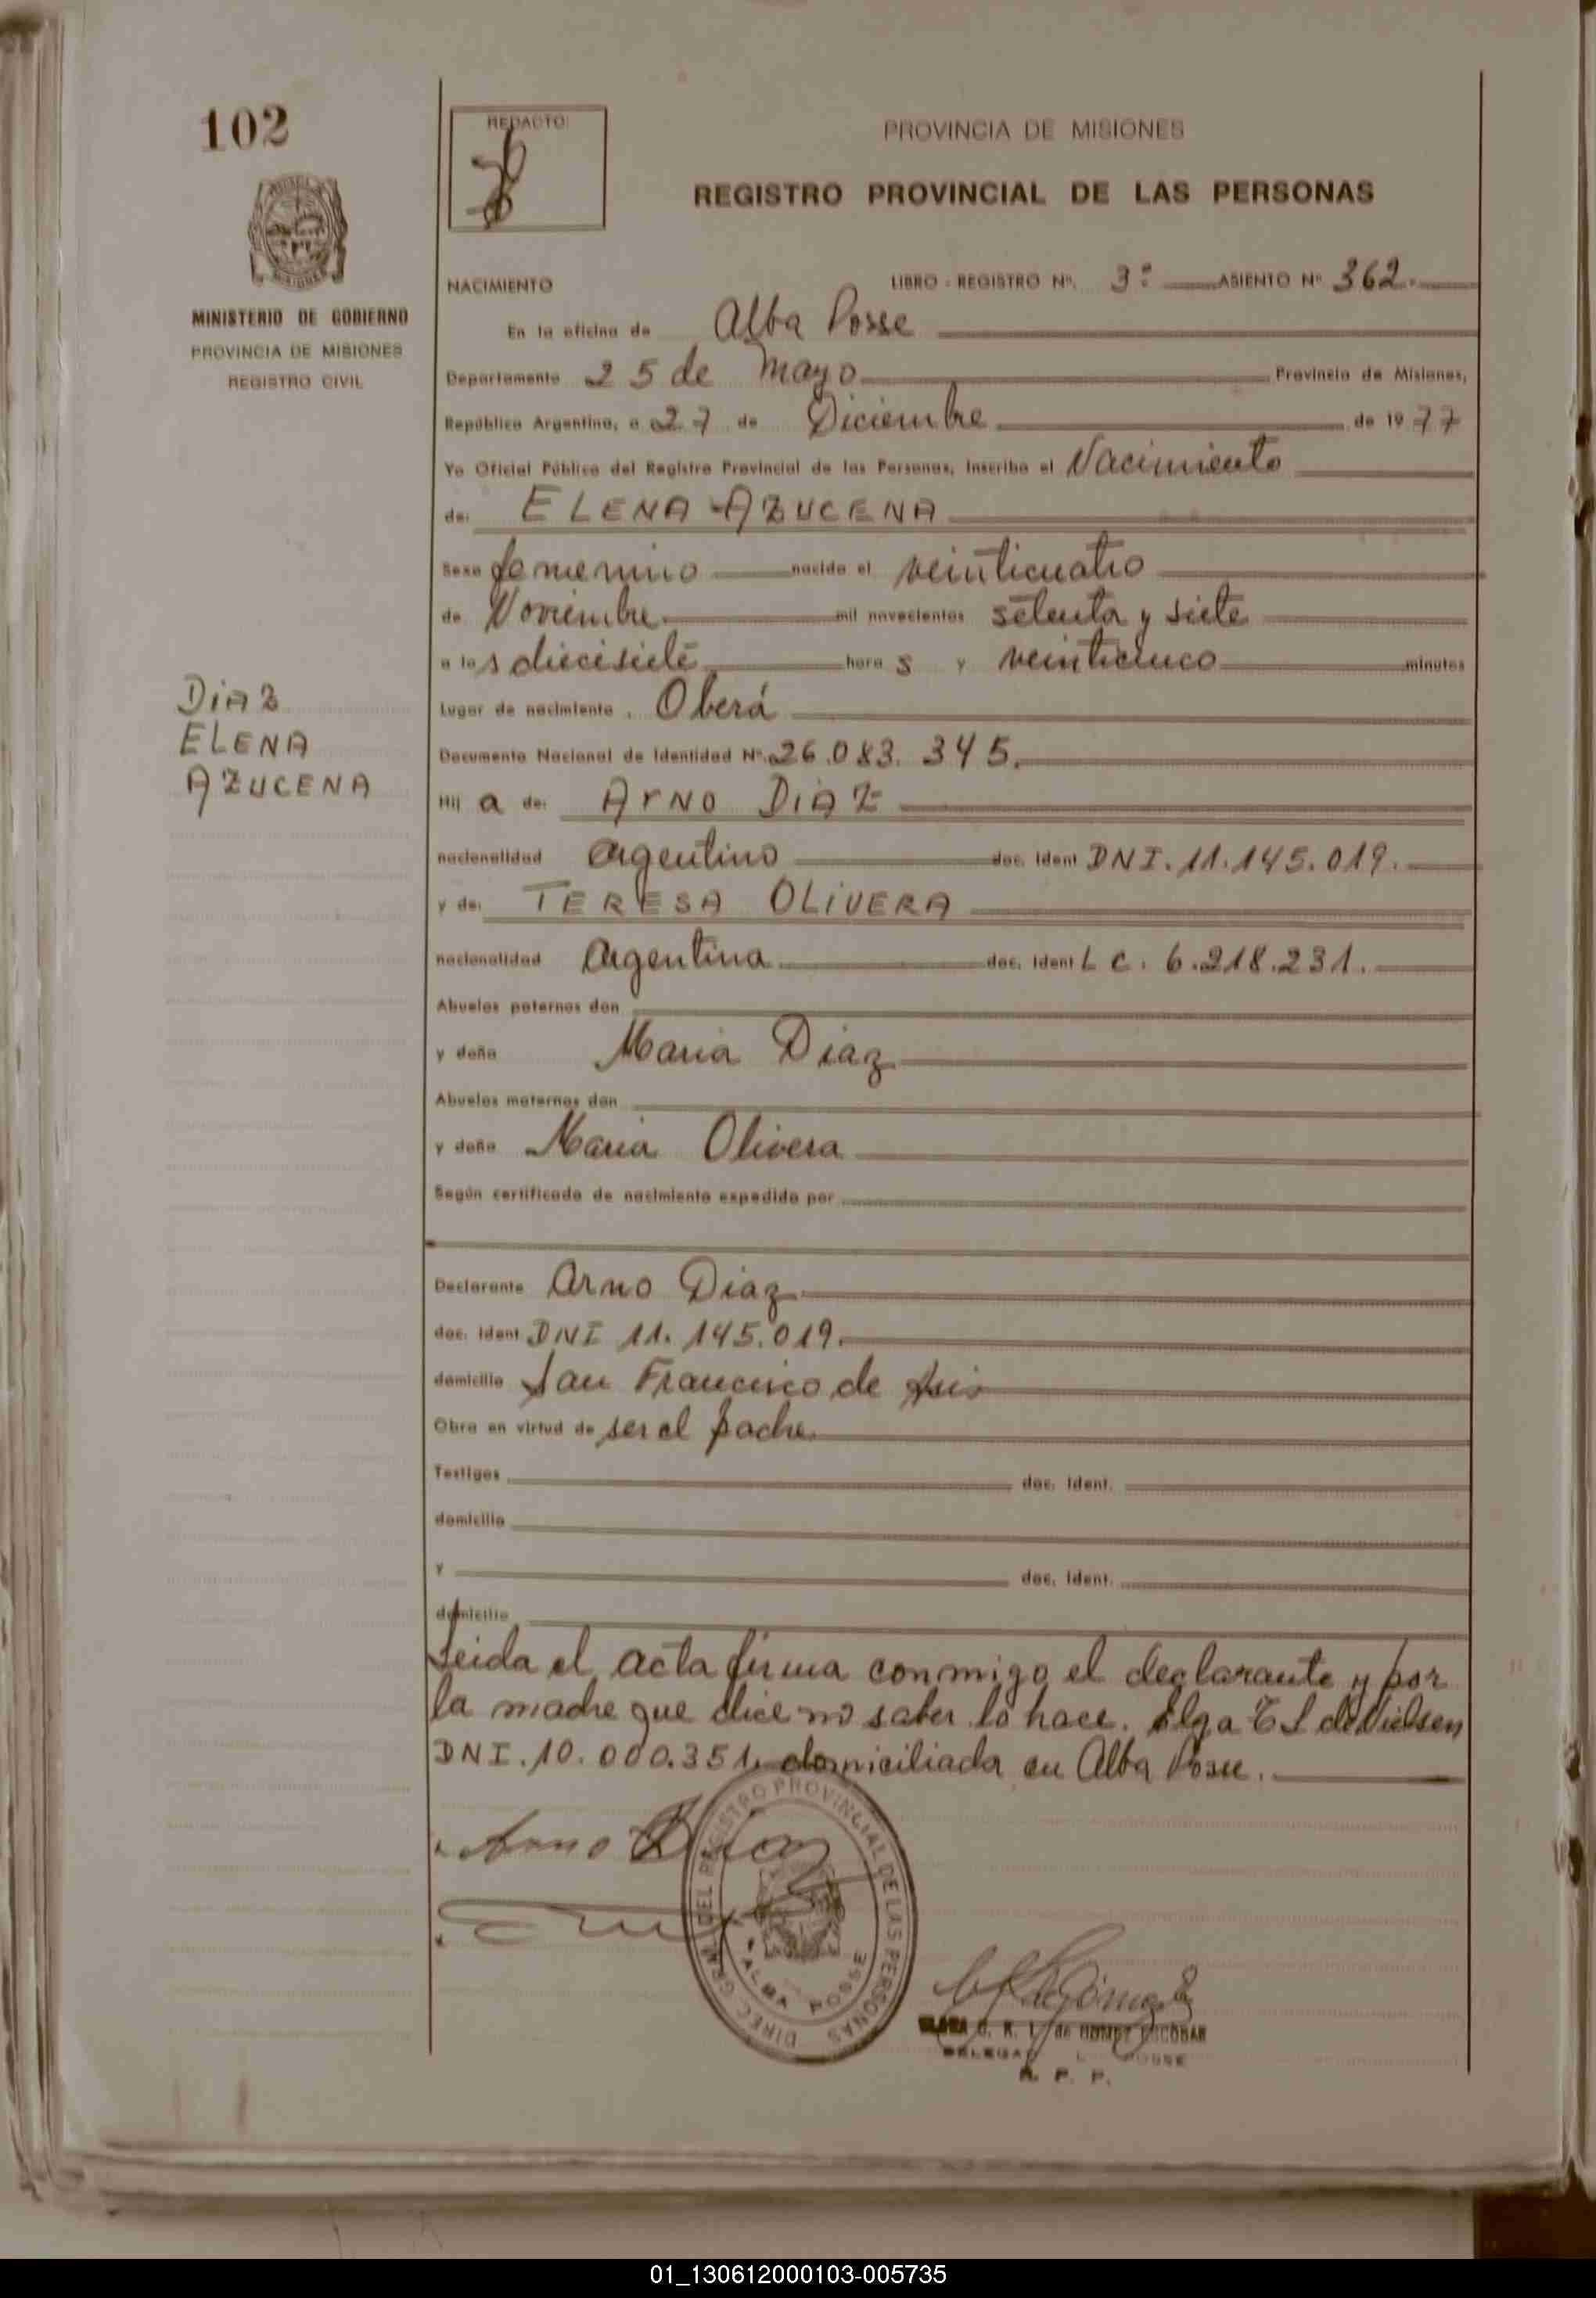 102
REDACTO:
PROVINCIA DE MISIONES
REGISTRO PROVINCIAL DE LAS PERSONAS
MINISTERIO DE GOBIERNO
PROVINCIA DE MISIONES
REGISTRO CIVIL
NACIMIENTO LIBRO - REGISTRO Nº. 3º ASIENTO Nº 362.
En la oficina de Alba Posse
Departamento 25 de Mayo Provincia de Misiones,
República Argentina, a 27 de Diciembre de 1977
Yo Oficial Público del Registro Provincial de las Personas, inscribo el Nacimiento
de: ELENA AZUCENA
Sexo femenino nacido el veinticuatro
de Noviembre mil novecientos setenta y siete
a las diecisiete horas y veinticinco minutos
DIAZ
ELENA
AZUCENA
Lugar de nacimiento. Oberá
Documento Nacional de Identidad Nº. 26.083.345.
Hija de: ArNO DIAZ
nacionalidad argentino doc. Ident DNI. 11.145.019.
y de: TERESA OLIVERA
nacionalidad Argentina doc. Ident L C. 6.218.231.
Abuelos paternos don
y doña Maria Diaz
Abuelos maternos don
y doña Maria Olivera
Según certificado de nacimiento expedido por
Declarante Arno Diaz
doc. Ident DNI 11.145.019.
domicilio San Francisco de Asis
Obra en virtud de ser el padre.
Testigos doc. Ident.
domicilio
y doc. Ident.
domicilio
Leida el acta firma conmigo el declarante y por
la madre que dice no saber lo hace. Elga E L de Nielsen
DNI. 10.000.351. domiciliada en Alba Posse.
Arno Diaz
DIREC. GRAL. DEL REGISTRO PROVINCIAL DE LAS PERSONAS
ALBA POSSE
de GOMEZ ESCOBAR
POSSE
R. P. P.
01_130612000103-005735